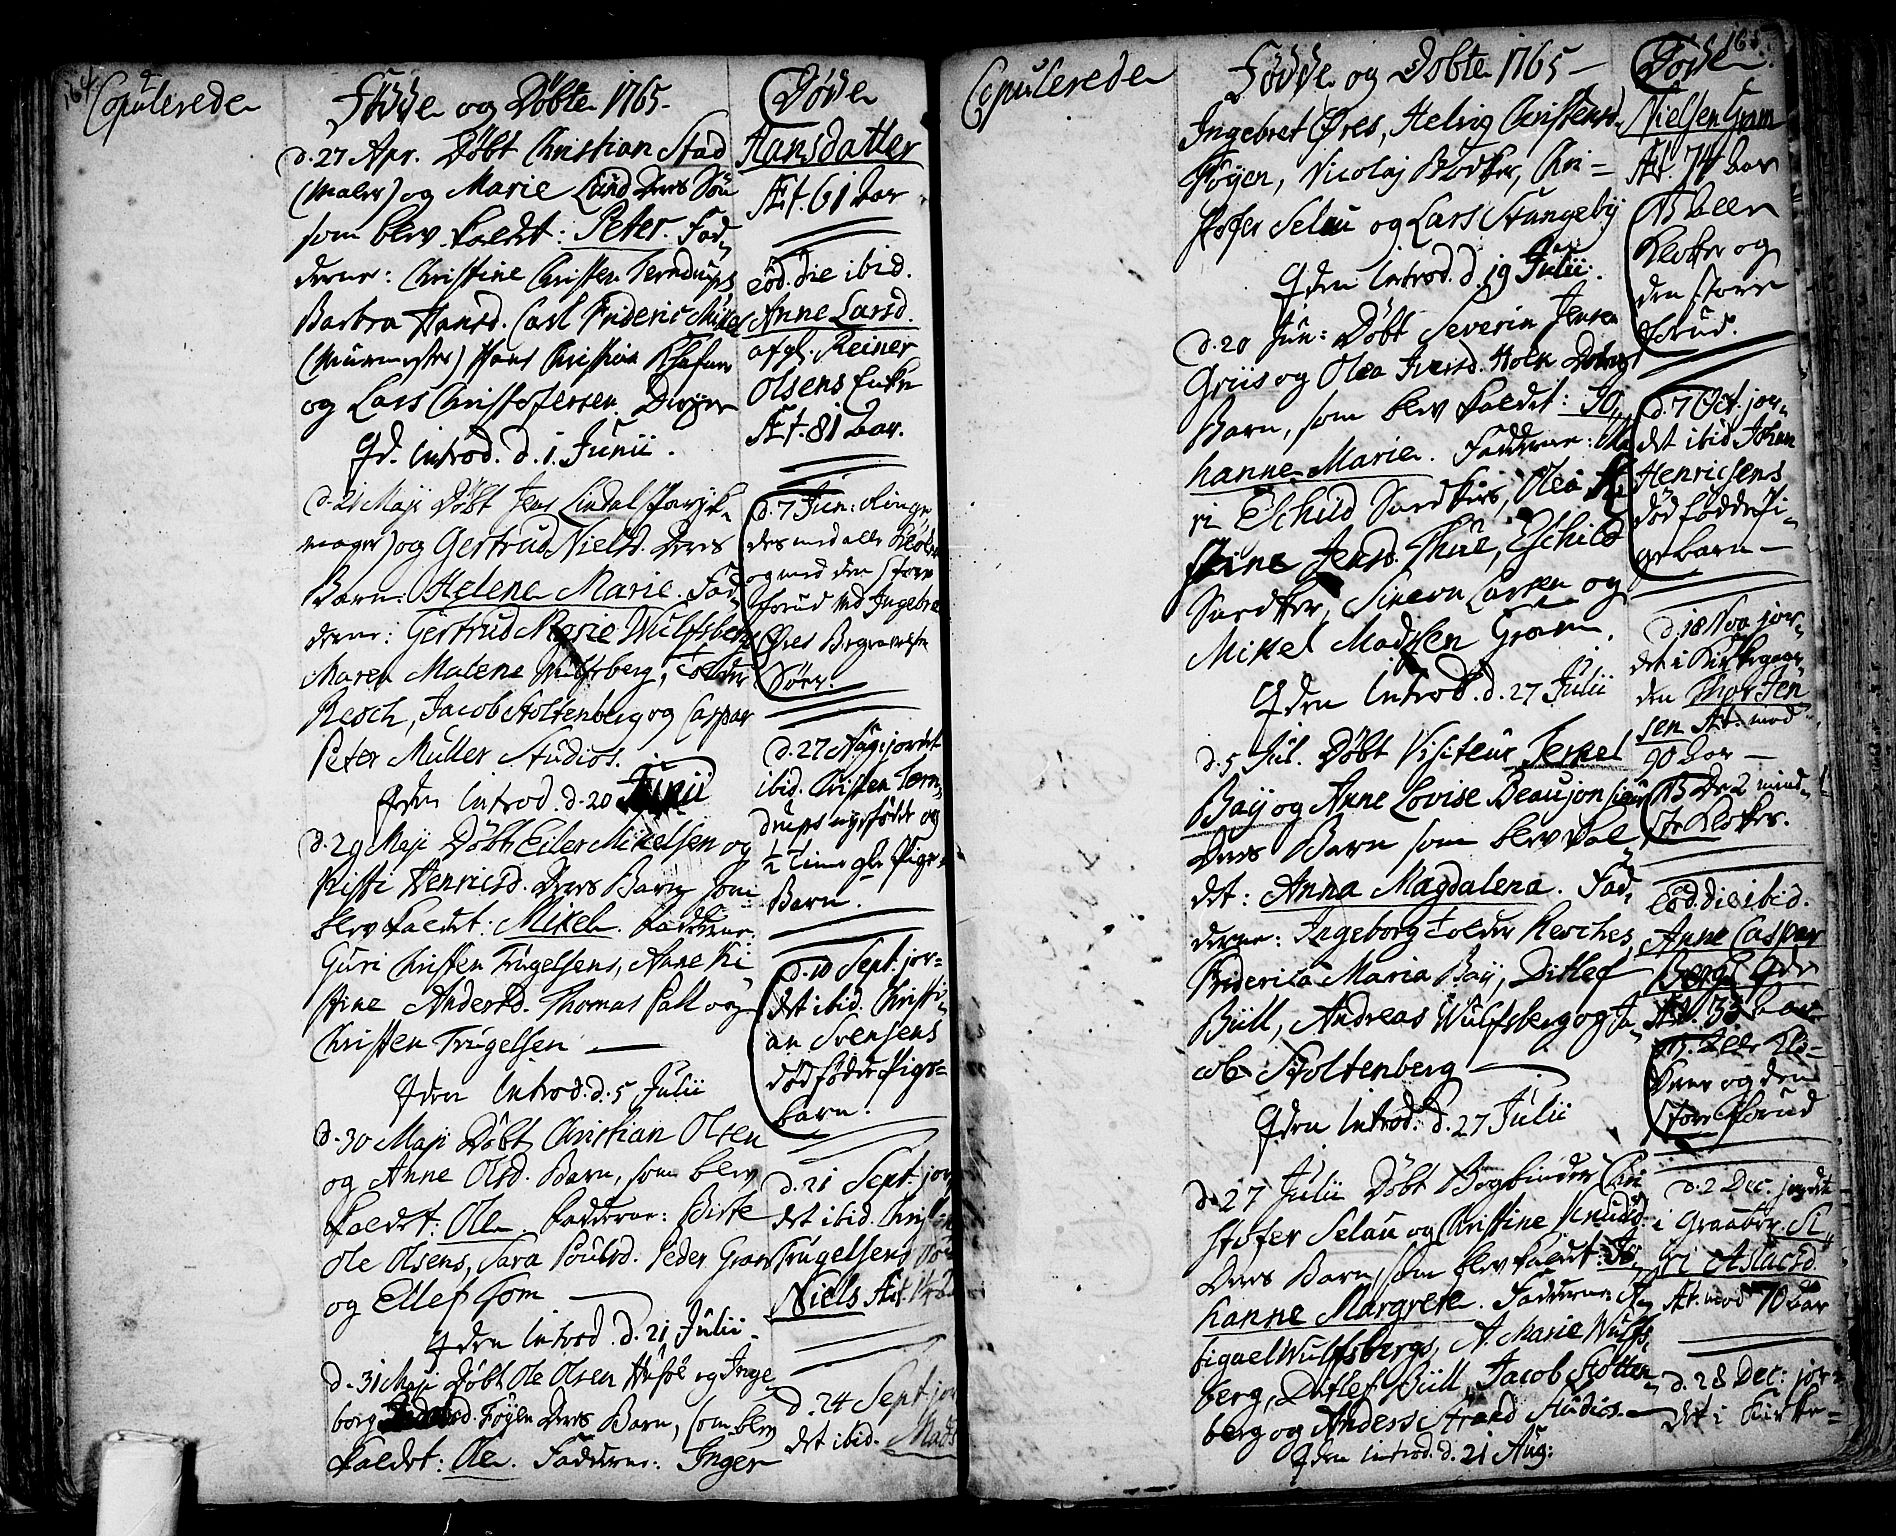 164
Copulerede
Fødde og Døbte 1765.
d. 27 Apr. Døbt Christian Stad
(Maler) og Marie Lund Deres Søn
som blev kaldt: Peter. Fad¬
derne: Christine Christen Terndrups
Barbra Hansd. Carl Frideric Mikel
(Muurmester) Hans Christian
og Lars Christofersen
Introd. d. 1. Junii.
d. 21 Maji Døbt Jens Lindal
mager) og Gertrud Nielsd. Deres
Barn: Helene Marie. Fad¬
derne: Gertrud Marie Wulfsberg
Maren Malene Wulfsberg, Tolder
Resch, Jacob Stoltenberg og Caspar
Peter Müller Studios.
Qden Introd. d. 20 Junii
d. 29 Maji Døbt Eiler Mikelsen og
Kisti Henricsd. Deres Barn som
blev kaldt: Mikel. Fadderne:
Guri Christen Trugelsens, Anne Ki¬
stine Andersd. Thomas Falk og
Christen Trugelsen —
Qden Introd. d. 5 Julii
d. 30 Maji Døbt Christian Olsen
og Anne Olsd. Barn, som blev
kaldet: Ole. Fadderne: Birte
Ole Olsens, Sara Poulsd. Peder Gram
og Ellef Som —
Qden Introd. d. 21 Julii.
d. 31 Maji Døbt Ole Olsen Husøe og Inge¬
borg Føyen Deres Barn, som blev
kaldet: Ole. Fadderne: Inger
Døde
Hansdatter
Æt. 61 Aar
Eod. die ibid.
Anne Larsd.
afgl. Reiner
Olsens Enke
Æt. 81 Aar.
d. 7 Jun: Ringe¬
des med alle Klokker
og med den store
forud ved Ingebret
Øres Begravelse
Søer.
d. 27 Aug: jordet
ibid. Christen Tern¬
drups nyefødde og
½ Time gl. Pige¬
Barn.
d. 10 Sept. jor=
det ibid. Christi¬
an Svensens
dødfødde Pige=
barn.
d. 21 Sept. jor
det ibid. Christen
Trugelsens Søn
Niels Æt.
d. 24 Sept. jor
det ibid. Mads
165.
Copulerede
Fødde og Døbte 1765 —
Ingebret Øres, Helvig Christensd.
Føyen, Nicolaj Bødker, Chri=
stofer Selau og Lars Stangebÿ
Qden Introd. d. 19 Julii.
d. 20 Jun: Døbt Severin Jensen
Griis og Olea Iversd. Holm
Barn, som blev kaldet: Jo¬
hanne Marie. Fadderne: Ma
ri Eschild Sandkers, Olea
stine Jensd. Thue, Eschild
Sandker, Simeon Larsen og
Mikel Madssen Gram.
Qden Introd. d. 27 Julii
d. 5 Jul. Døbt Visiteur Terkel
Baÿ og Anne Lovise Beaujon
Deres Barn som blev kal¬
det: Anna Magdalena. Fad¬
derne: Ingeborg Tolder Resches,
Friderica Maria Baÿ, Ditlef
Büll, Andreas Wulfsberg og Ja¬
cob Stoltenberg —
Qden Introd. d. 27 Julii
d. 27 Julii Døbt Bogbinder Chri
stofer Selau og Christine Knudsd.
Deres Barn, som blev kaldet: Jo¬
hanne Margrete. Fadderne: A¬
bigael Wulfsbergs, A. Marie Wulfs¬
berg, Ditlef Büll, Jacob Stolten¬
berg og Anders Strand Studios. —
Qden Introd. d. 21 Aug:
Døde.
Nielsen Gram
Æt. 74 Aar
NB Alle
Klokker og
den store
forud.
d. 7 Oct. jor¬
det ibid. Johan
Henricsens
dødfødde Pi¬
gebarn —
d. 18 Nov jor¬
det i Kirkegaar¬
den Thor Jen
sen Æt. mod
90 Aar —
NB De 2 mind¬
ste Klokker.
Eod. die ibid.
Anne Caspar
Bergs Qde
Æt. 33 Aar
NB. Alle Klo=
kker og den
store forud
d. 2 Dec. jordet
i Graabr. Si¬
ri Aslacsd.
Æt. mod 70 Aar
d. 28 Dec: jor=
det i Kirke=